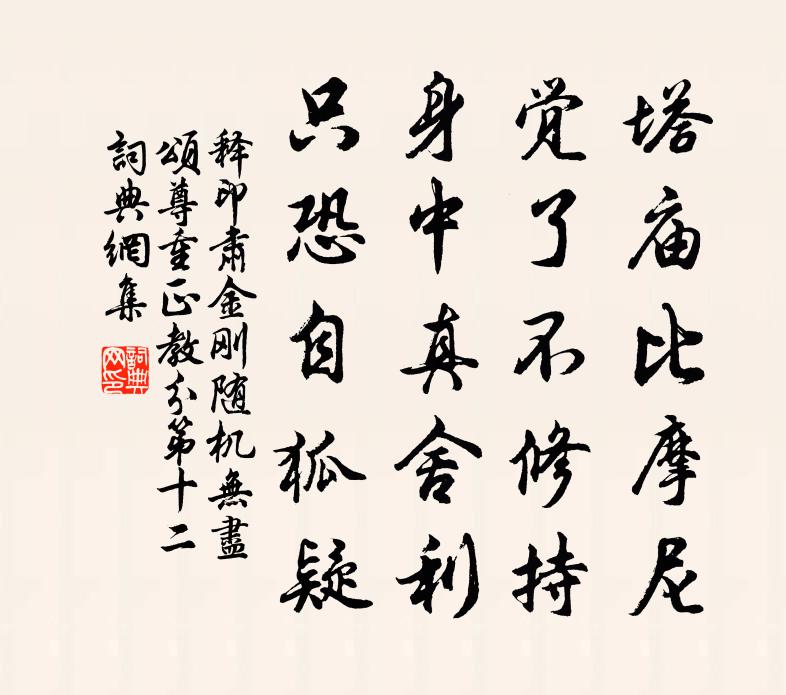 塔庙比摩尼
觉了不修持
身中真舍利
只恐自狐疑
释印肃金刚随机無盡
頌尊重正教分第十二
詞典網集
詞典
网印